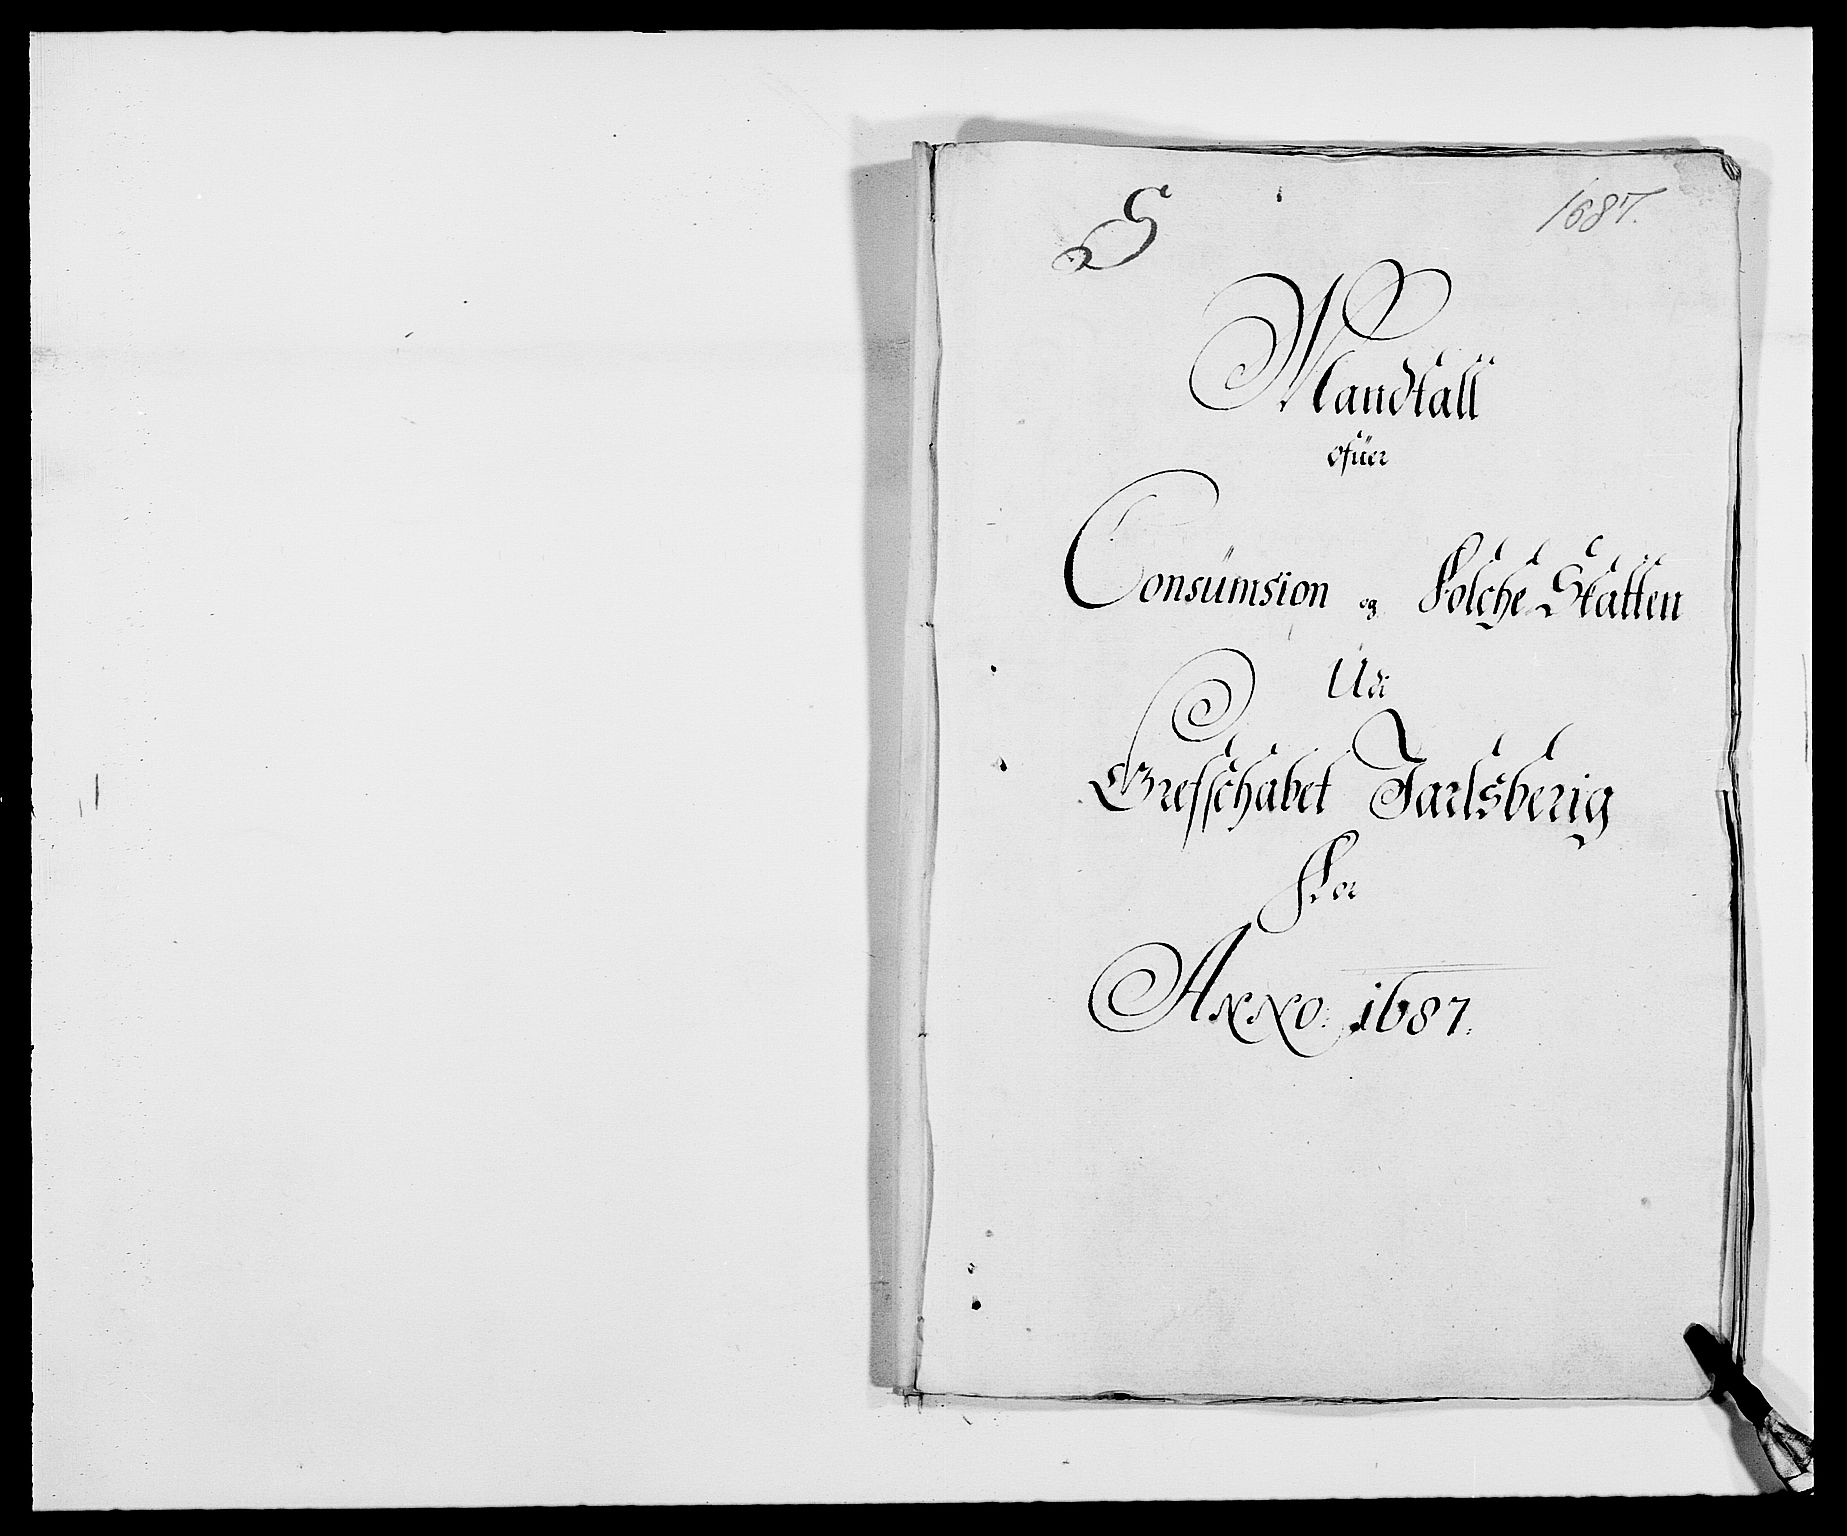 S
1687.
Mandtall
ofüer
Consümsion og Folche Skatten
Udi
Grefschabet Jarlsberig
For
Anno: 1687.